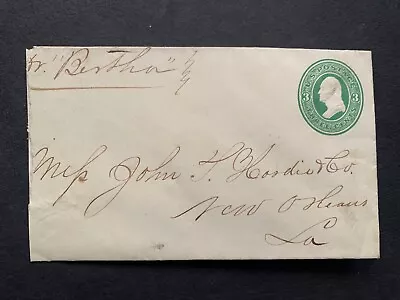 Pr. "Bertha"
U.S. POSTAGE
3 3
THREE CENTS
Mess John T. Hardie & Co.
New Orleans
La